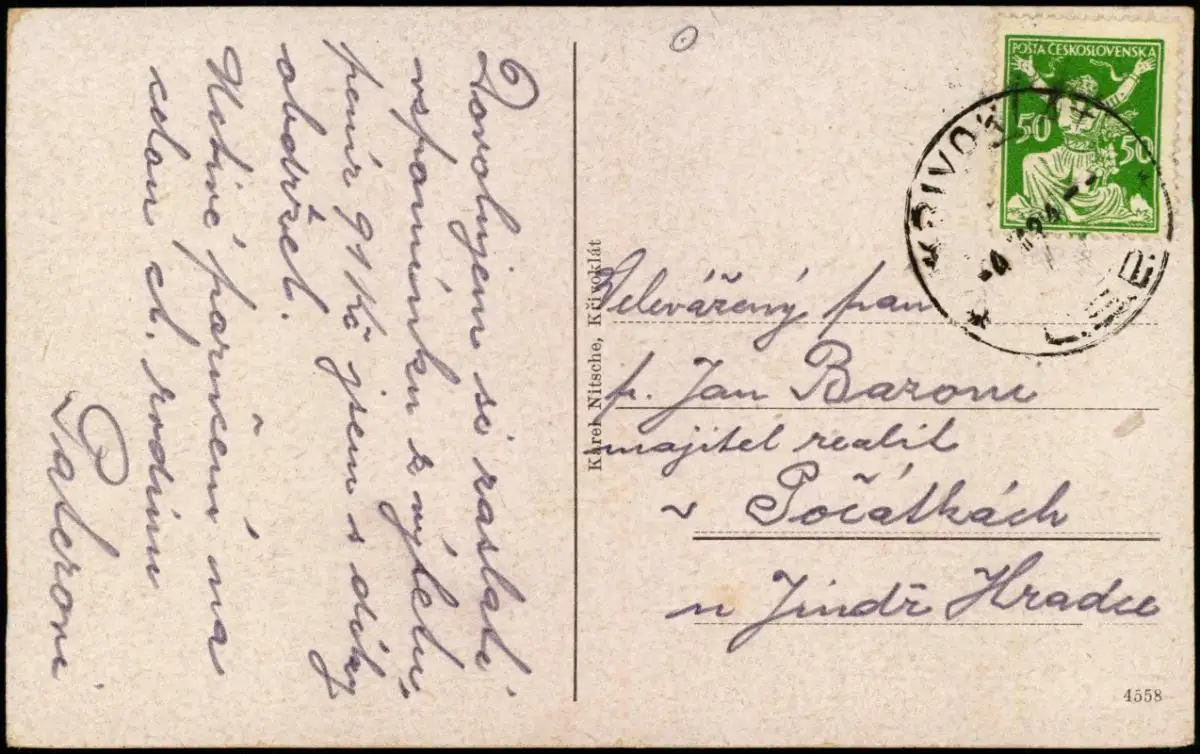 Dovolujem si zaslati
vspomínku z výletu,
peníz 91 Kč jsem s díky
obdržel.
Uctivé poručení na
celou ct. rodinu
Paterovi
Karel Nitsche, Křivoklát
POŠTA ČESKOSLOVENSKA
50 50
KŘIVOKLÁT
Velevážený pan
p. Jan
majitel realit
v Počátkách
u Jindř Hradce
4558